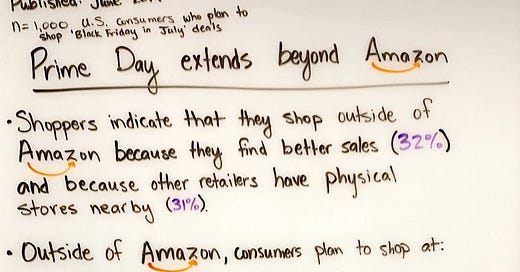 Published: June
n=1,000 U.S. consumers who plan to
shop 'Black Friday in July' deals
Prime Day extends beyond Amazon
• Shoppers indicate that they shop outside of
Amazon because they find better sales (32%)
and because other retailers have physical
stores nearby (31%).
• Outside of Amazon, consumers plan to shop at: